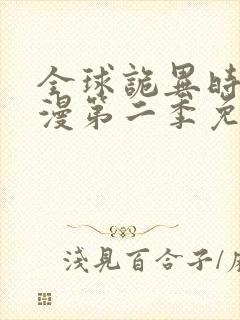 全球詭異時
漫第二季免
淺見百合子/